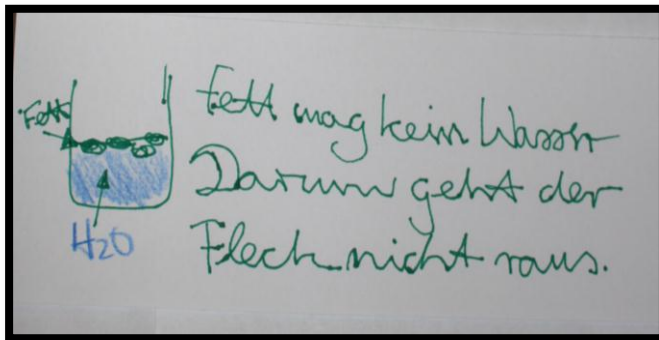 Fett
H2O
Fett mag kein Wasser
Darum geht der
Fleck nicht raus.